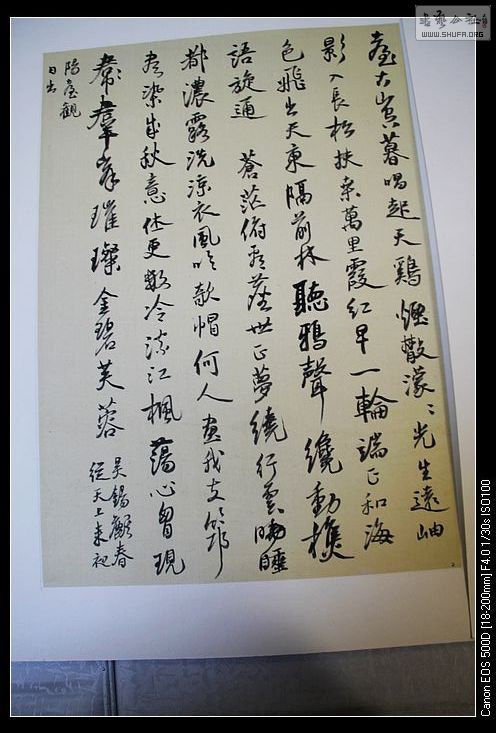 臺古寅暮唱起天鷄煙散濛〻光生遠岫
影入長松扶桑萬里霞紅早一輪端正和海
色飛出天東隔前林聽鴉聲纔動樵
語旋通 蒼茫俯看落世正夢繞行雲
都濃露洗涼衣風吹欹帽何人畫我支筇
看染成秋意休更冷流江楓蕩心胸現
羣岸璀璨金碧芙蓉
吳錫麒春
從天上來祀
陽臺觀
日出
書藝公社
WWW.SHUFA.ORG
Canon EOS 500D [18-200mm] F4.0 1/30s ISO100